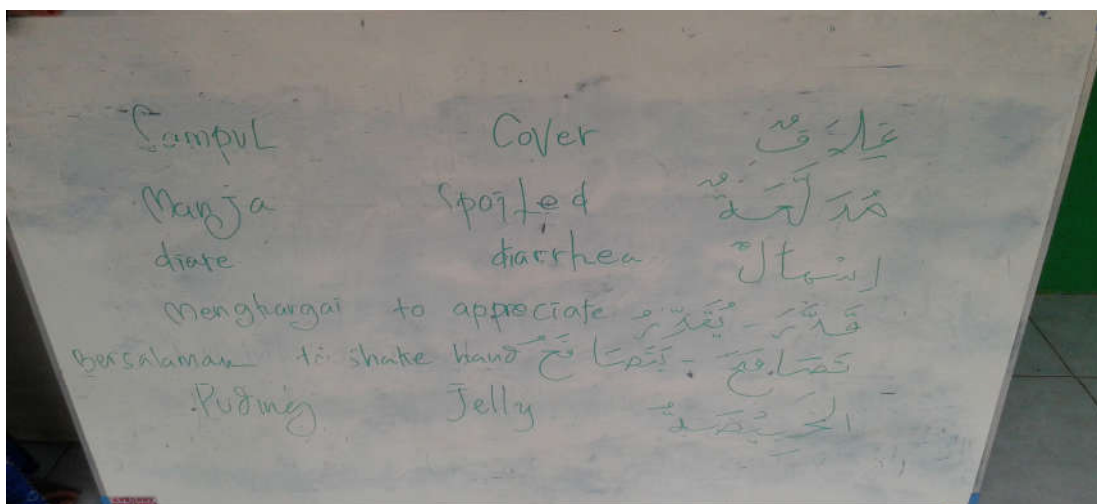 Sampul Cover غِلَافٌ
Manja Spoiled مُدَلَّعَةٌ
diare diarrhea إِسْهَالٌ
Menghargai to appreciate قَدَّرَ - يُقَدِّرُ
Bersalaman to shake hand تَصَافَحَ - يَتَصَافَحُ
Puding Jelly